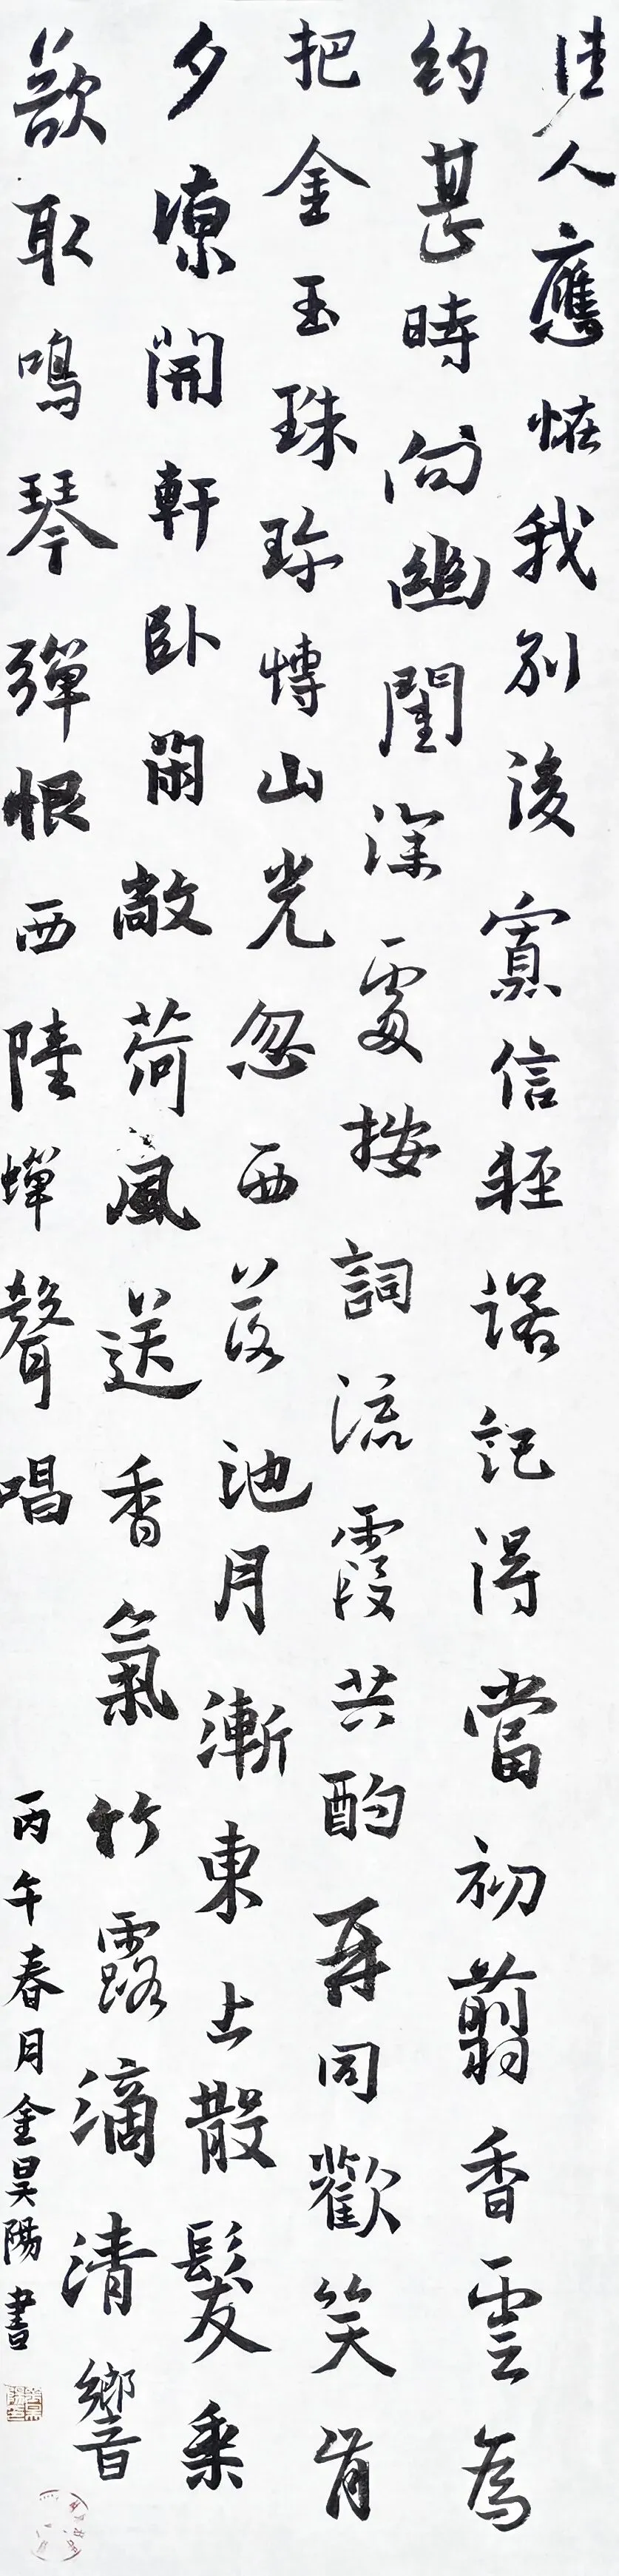 佳人應怪我別後寡信輕諾記得當初翦香雲為
約甚時向幽閨深處按詞流霞共酌再同歡笑肯
把金玉珠珍博山光忽西落池月漸東上散髮乘
夕涼開軒臥閑敞荷風送香氣竹露滴清響
欲取鳴琴彈恨西陸蟬聲唱
丙午春月金昊陽書